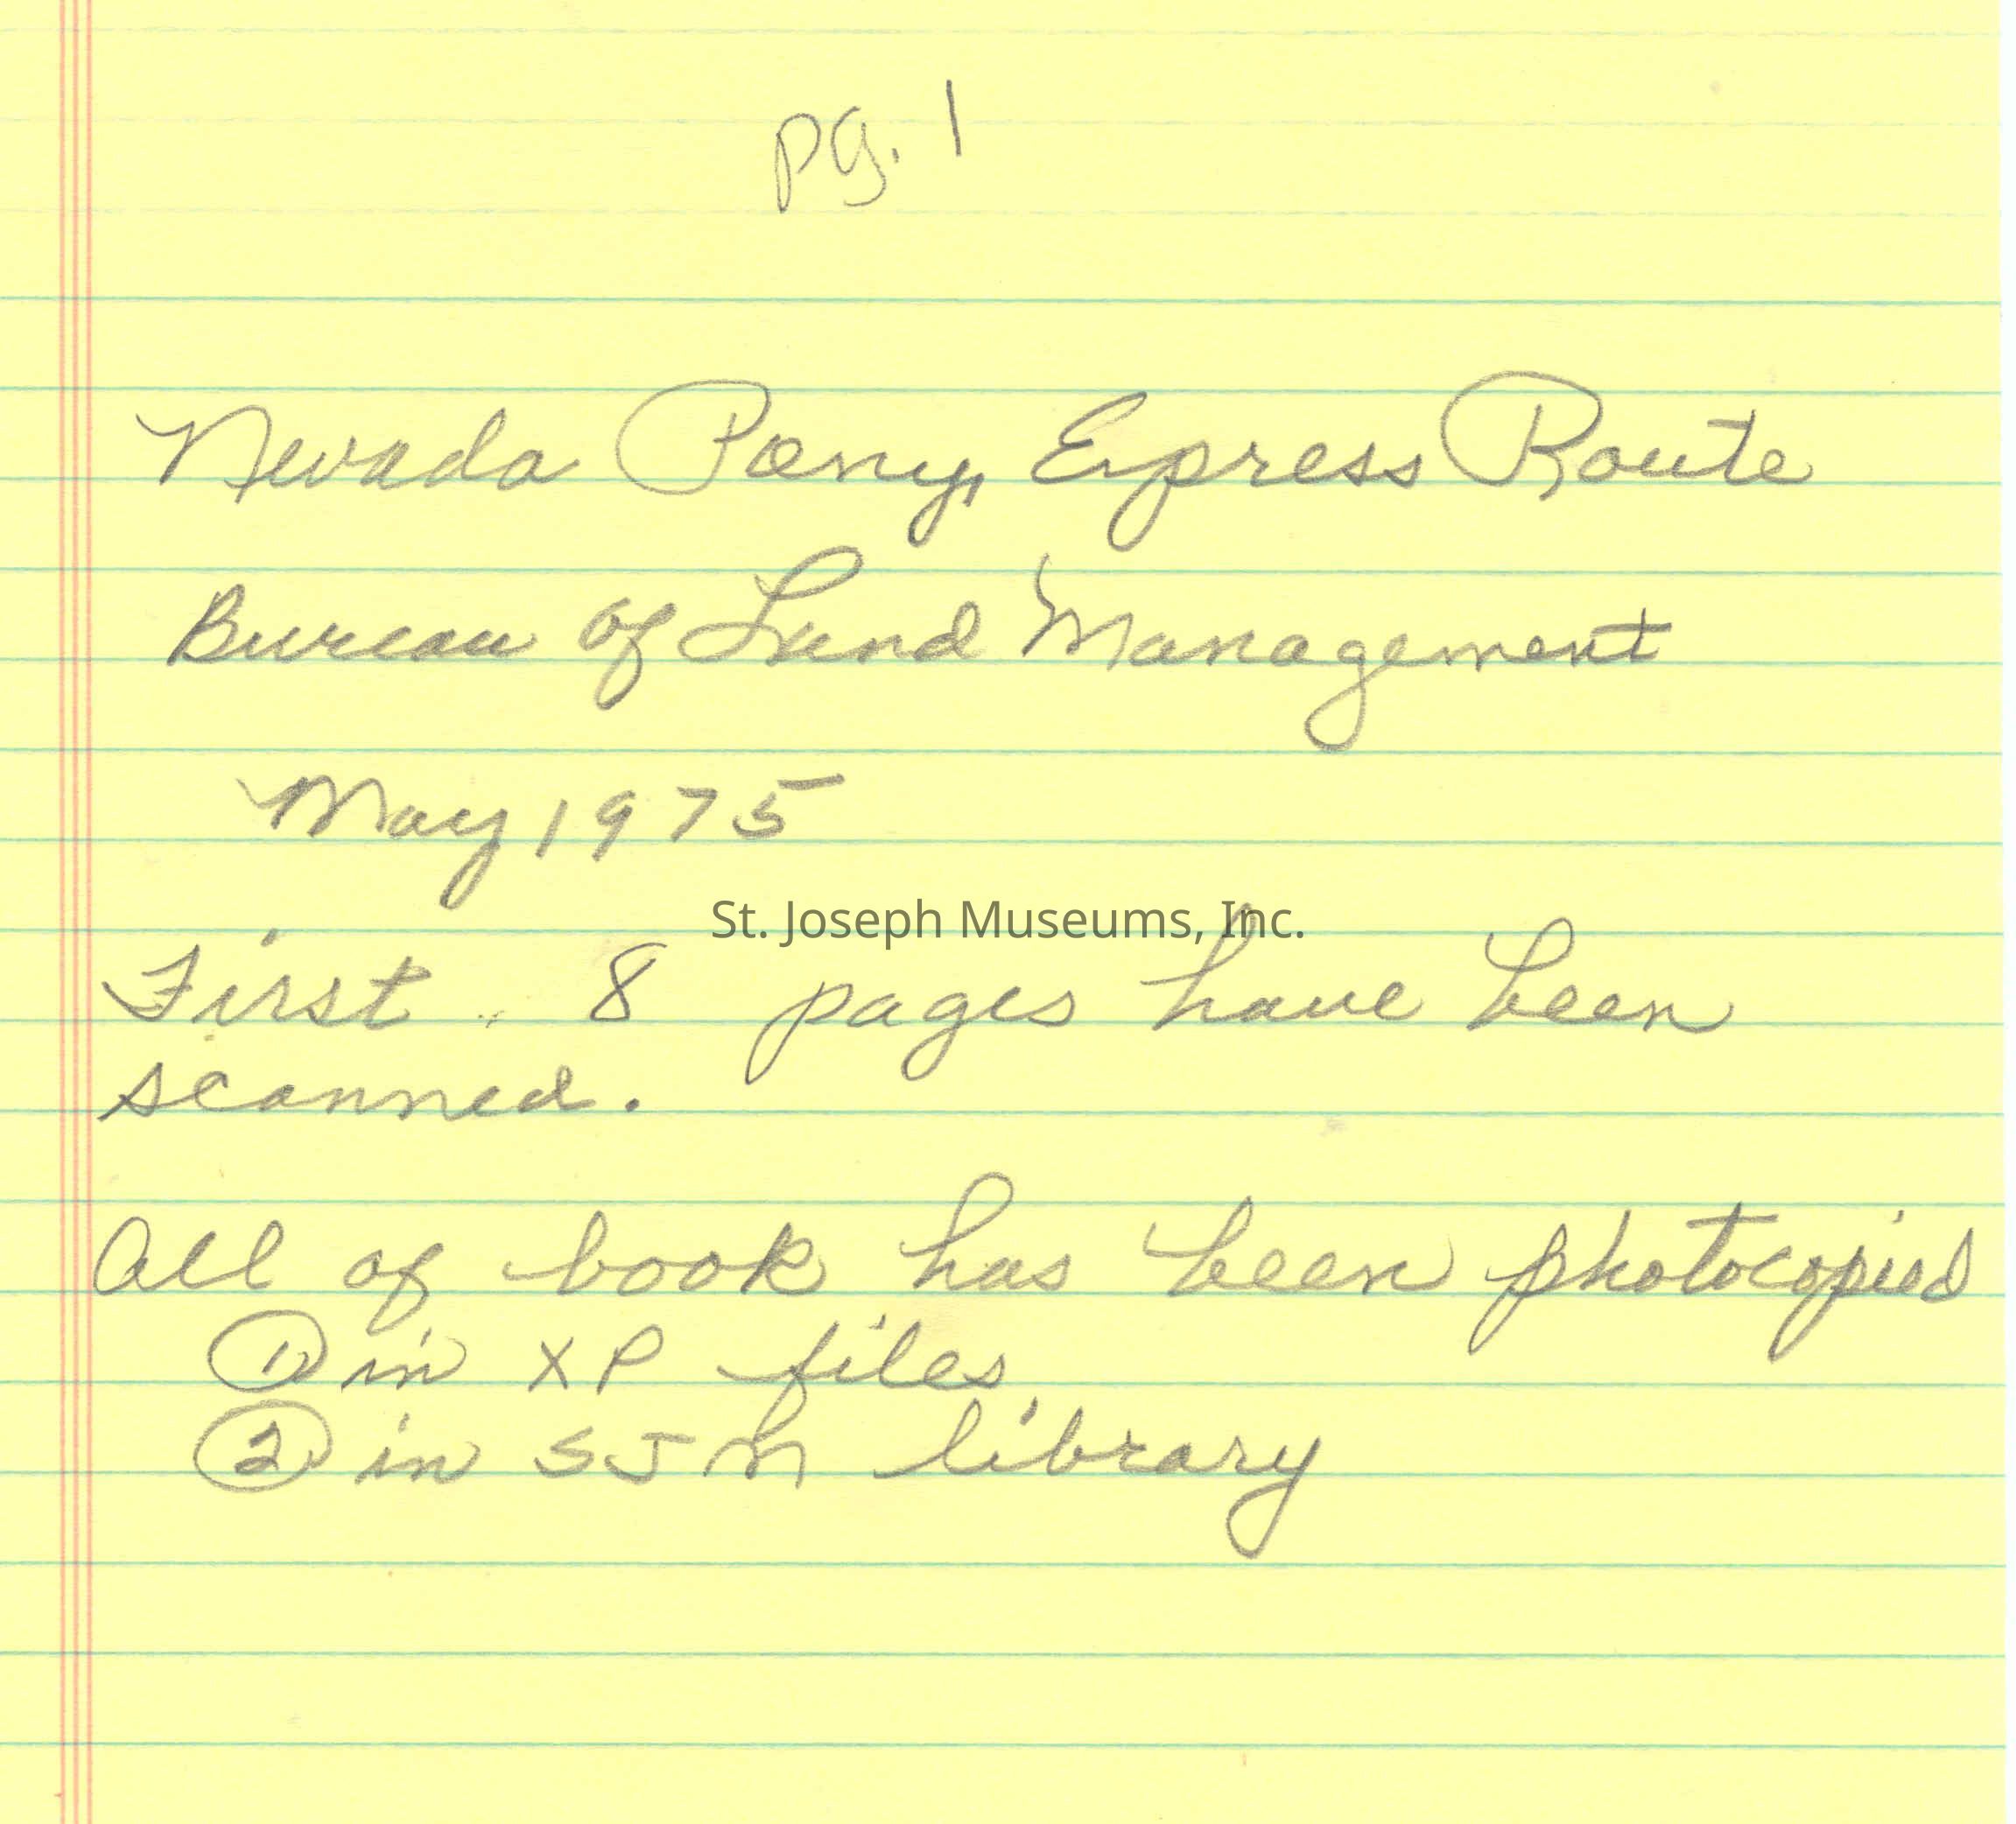 pg. 1
Nevada Pony Express Route
Bureau of Land Management
May 1975
St. Joseph Museums, Inc.
First 8 pages have been
scanned.
All of book has been photocopied
① in XP files
② in SJM library